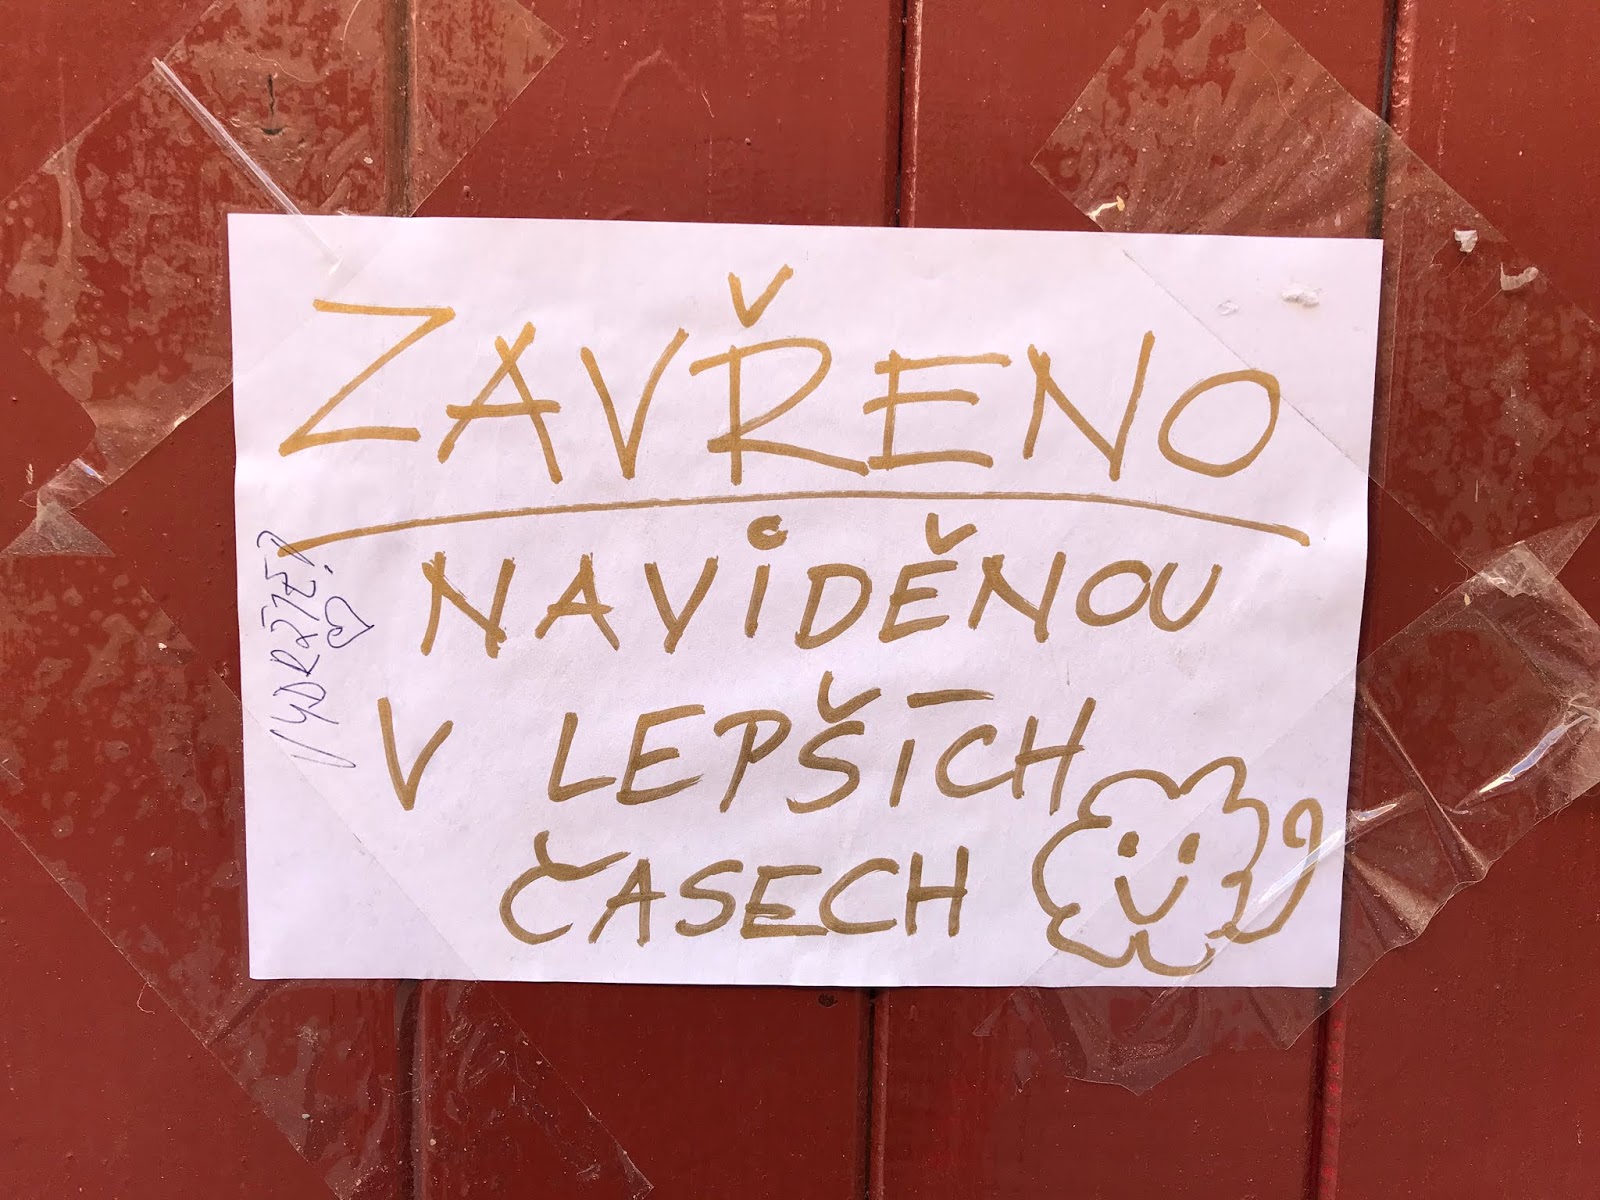 ZAVŘENO
NAVIDĚNOU
V LEPŠÍCH
ČASECH
VYDRŽTE!